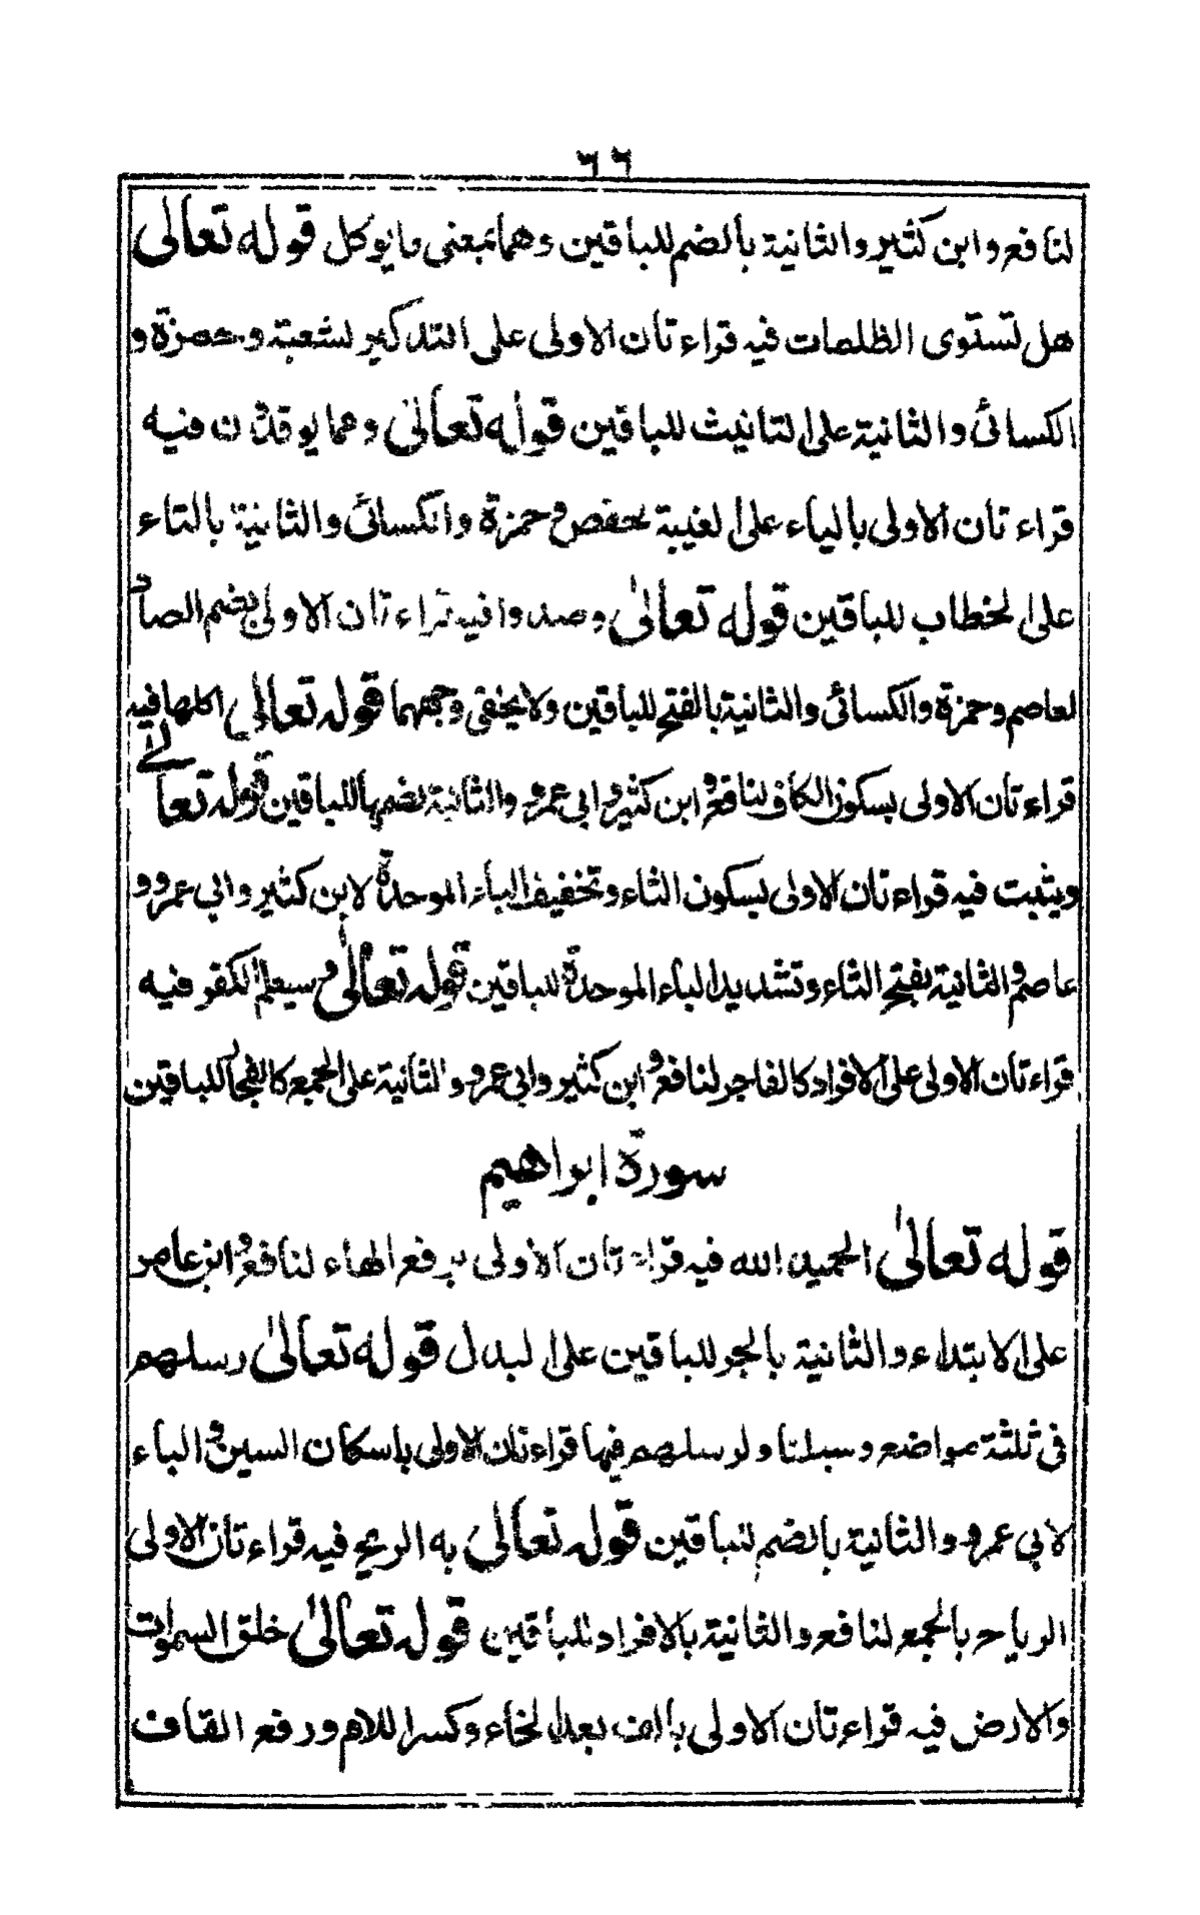 ٦٦
لنافع وابن كثير والثانية بالضم للباقين وهما بمعنى ما يوكل قوله تعالى
هل تستوى الظلمات فيه قراءتان الاولى على التذكير لشعبة وحمزة و
الكسائى والثانية على التانيث للباقين قوله تعالى ومما يوقدون فيه
قراءتان الاولى بالياء على الغيبة لحفص وحمزة والكسائى والثانية بالتاء
على الخطاب للباقين قوله تعالى وصدوا فيه قراءتان الاولى بضم الصاد
لعاصم وحمزة والكسائى والثانية بالفتح للباقين ولا يخفى وجههما قوله تعالى اكلها فيه
قراءتان الاولى بسكون الكاف لنافع وابن كثير وابى عمرو والثانية بضمها للباقين قوله تعالى
ويثبت فيه قراءتان الاولى بسكون الثاء وتخفيف الباء الموحدة لابن كثير وابى عمرو و
عاصم والثانية بفتح الثاء وتشديد الباء الموحدة للباقين قوله تعالى وسيعلم الكفر فيه
قراءتان الاولى على الافراد كالفاجر لنافع وابن كثير وابى عمرو والثانية على الجمع كالفجار للباقين
سورة ابراهيم
قوله تعالى الحميد الله فيه قراءتان الاولى برفع الهاء لنافع وابن عامر
على الابتداء والثانية بالجر للباقين على البدل قوله تعالى رسلهم
فى ثلثة مواضع وسبلنا ولرسلهم فيها قراءتان الاولى باسكان السين والباء
لابى عمرو والثانية بالضم للباقين قوله تعالى به الريح فيه قراءتان الاولى
الرياح بالجمع لنافع والثانية بالافراد للباقين قوله تعالى خلق السموات
والارض فيه قراءتان الاولى بالف بعد الخاء وكسر اللام ورفع القاف